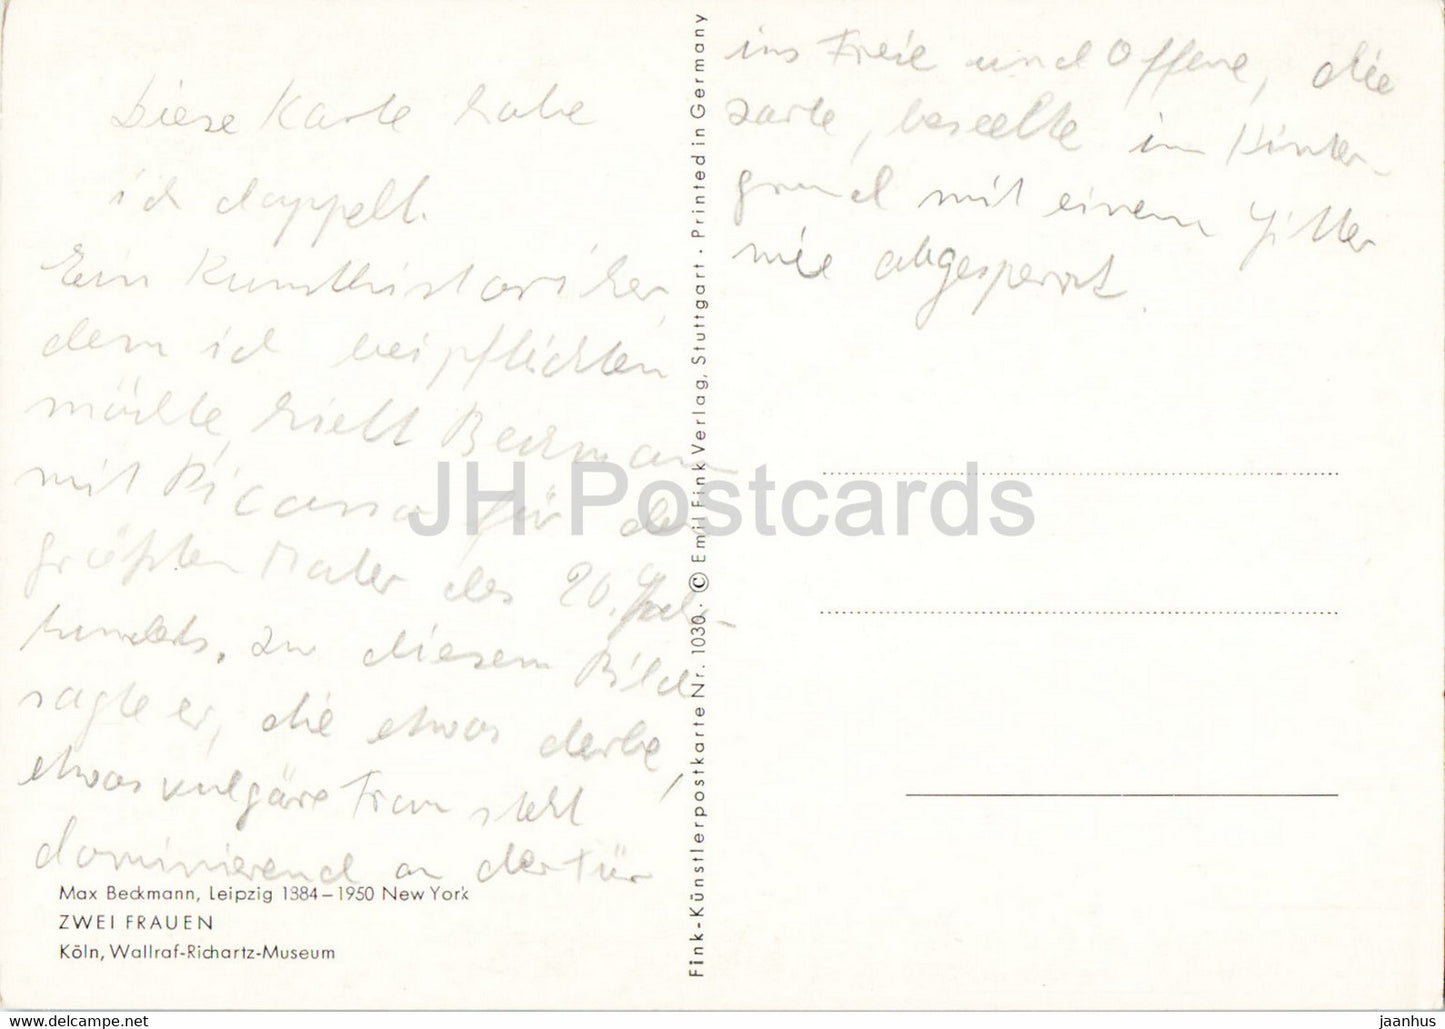 Diese Karte habe
ich doppelt.
Ein Kunsthistoriker,
dem ich beipflichten
möchte, hielt Beckmann
mit Picasso für den
größten Maler des 20. Jahr-
hunderts. Zu diesem Bild
sagte er, die etwas derbe,
etwas vulgäre Frau steht
dominierend an der Tür
ins Freie und Offene, die
zarte, beseelte im Hinter-
grund mit einem Gitter
wie abgesperrt.
Max Beckmann, Leipzig 1884–1950 New York
ZWEI FRAUEN
Köln, Wallraf-Richartz-Museum
Fink-Künstlerpostkarte Nr. 1030 · © Emil Fink Verlag, Stuttgart · Printed in Germany
JH Postcards
https://www.hippostcard.com/store/
jaanhus